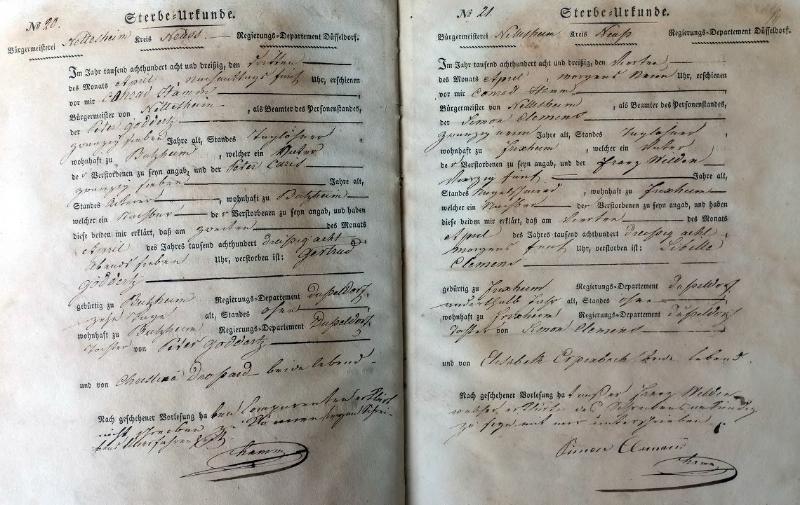 No 20. Sterbe-Urkunde.
Bürgermeisterei Nettesheim Kreis Neuss Regierungs-Departement Düsseldorf.
Im Jahr tausend achthundert acht und dreißig, den dritten
des Monats April Nachmittags fünf Uhr, erschienen
vor mir Conrad Hamm
Bürgermeister von Nettesheim, als Beamter des Personenstandes,
der Peter Goddertz
zwanzig sieben Jahre alt, Standes Taglöhner
wohnhaft zu Butzheim, welcher ein Vater
der Verstorbenen zu seyn angab, und der Peter
zwanzig sieben Jahre alt,
Standes Ackerer, wohnhaft zu Butzheim
welcher ein Nachbar der Verstorbenen zu seyn angab, und haben
diese beiden mir erklärt, daß am zweiten des Monats
April des Jahres tausend achthundert dreissig acht
Abends sieben Uhr, verstorben ist: Gertrud
Goddertz
gebürtig zu Butzheim Regierungs-Departement Düsseldorf
zehn Tage alt, Standes ohne
wohnhaft zu Butzheim Regierungs-Departement Düsseldorf
Tochter von Peter Goddertz
und von Christina beide lebend
Nach geschehener Vorlesung haben Comparenten erklärt
nicht schreiben zu
Hamm
No 21. Sterbe-Urkunde.
Bürgermeisterei Nettesheim Kreis Neuß Regierungs-Departement Düsseldorf.
Im Jahr tausend achthundert acht und dreißig, den vierten
des Monats April, morgens neun Uhr, erschienen
vor mir Conrad Hamm
Bürgermeister von Nettesheim, als Beamter des Personenstandes,
der Simon Clemens
zwanzig neun Jahre alt, Standes Taglöhner
wohnhaft zu Frixheim, welcher ein Vater
der Verstorbenen zu seyn angab, und der Franz Welden
vierzig fünf Jahre alt,
Standes, wohnhaft zu Frixheim
welcher ein Nachbar der Verstorbenen zu seyn angab, und haben
diese beiden mir erklärt, daß am vierten des Monats
April des Jahres tausend achthundert dreissig acht
morgens fünf Uhr, verstorben ist: Sibilla
Clemens
gebürtig zu Frixheim Regierungs-Departement Düsseldorf
anderthalb Jahr alt, Standes ohne
wohnhaft zu Frixheim Regierungs-Departement Düsseldorf
Tochter von Simon Clemens
und von Elisabeth beide lebend.
Nach geschehener Vorlesung hat außer Franz Welden
welcher erklärte des Schreibens unkundig
zu seyn mit mir unterschrieben.
Simon Clemens
Hamm